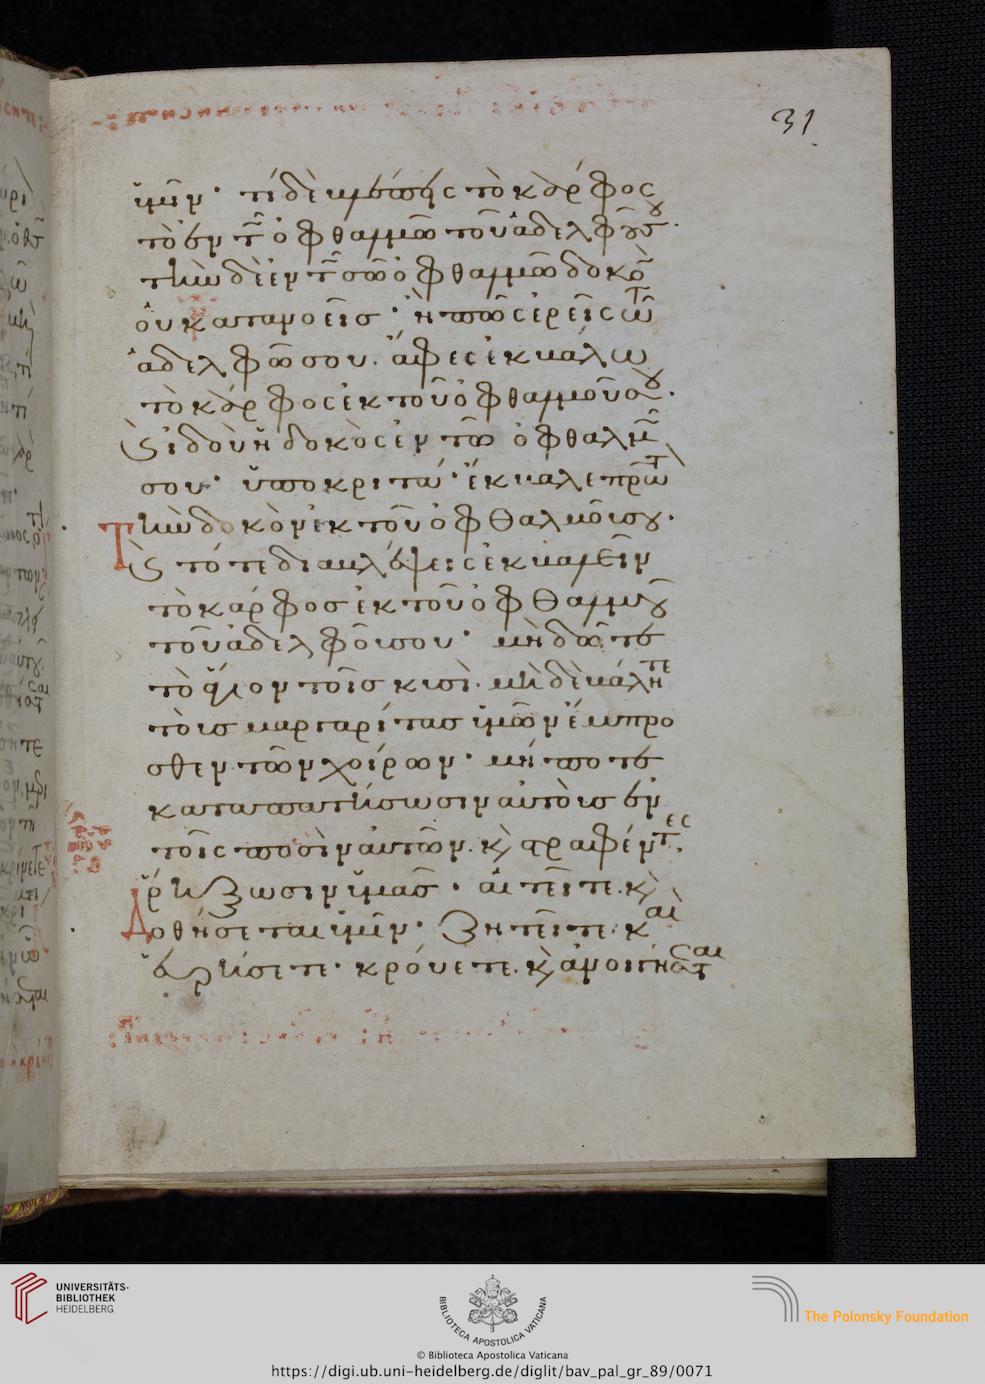 31
ὑμῖν· τί δὲ βλέπεις τὸ κάρφος
τὸ ἐν τῶ ὀφθαλμῶ τοῦ ἀδελφοῦ σου·
τὴν δὲ ἐν τῶ σῶ ὀφθαλμῶ δοκὸν
οὐ κατανοεῖς· ἢ πῶς ἐρεῖς τῶ
ἀδελφῶ σου· ἄφες ἐκβάλω
τὸ κάρφος ἐκ τοῦ ὀφθαλμοῦ σου·
καὶ ἰδοὺ ἡ δοκὸς ἐν τῶ ὀφθαλμῶ
σου· ὑποκριτά· ἔκβαλε πρῶτον
τὴν δοκὸν ἐκ τοῦ ὀφθαλμοῦ σου·
καὶ τότε διαβλέψεις ἐκβαλεῖν
τὸ κάρφος ἐκ τοῦ ὀφθαλμοῦ
τοῦ ἀδελφοῦ σου· μὴ δῶτε
τὸ ἅγιον τοῖς κυσί· μὴ δὲ βάλητε
τοὺς μαργαρίτας ὑμῶν ἔμπρο
σθεν τῶν χοίρων· μήποτε
καταπατήσωσιν αὐτοὺς ἐν
τοῖς ποσὶν αὐτῶν· καὶ στραφέντες
ῥήξωσιν ὑμᾶς· αἰτεῖτε καὶ
Δοθήσεται ὑμῖν· ζητεῖτε καὶ
εὑρήσετε· κρούετε καὶ ἀνοιγήσεται
UNIVERSITÄTS-
BIBLIOTHEK
HEIDELBERG
BIBLIOTECA APOSTOLICA VATICANA
The Polonsky Foundation
© Biblioteca Apostolica Vaticana
https://digi.ub.uni-heidelberg.de/diglit/bav_pal_gr_89/0071